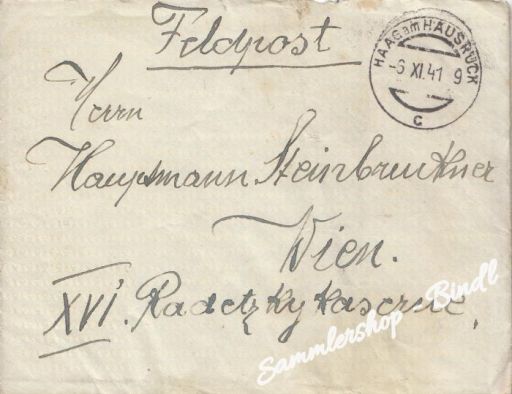 Feldpost
HAAG am HAUSRUCK
-6 XI. 41 9
C
Herrn
Hauptmann Steinbruckner
Wien.
XVI. Radetzkykaserne,
Sammlershop - Bindl